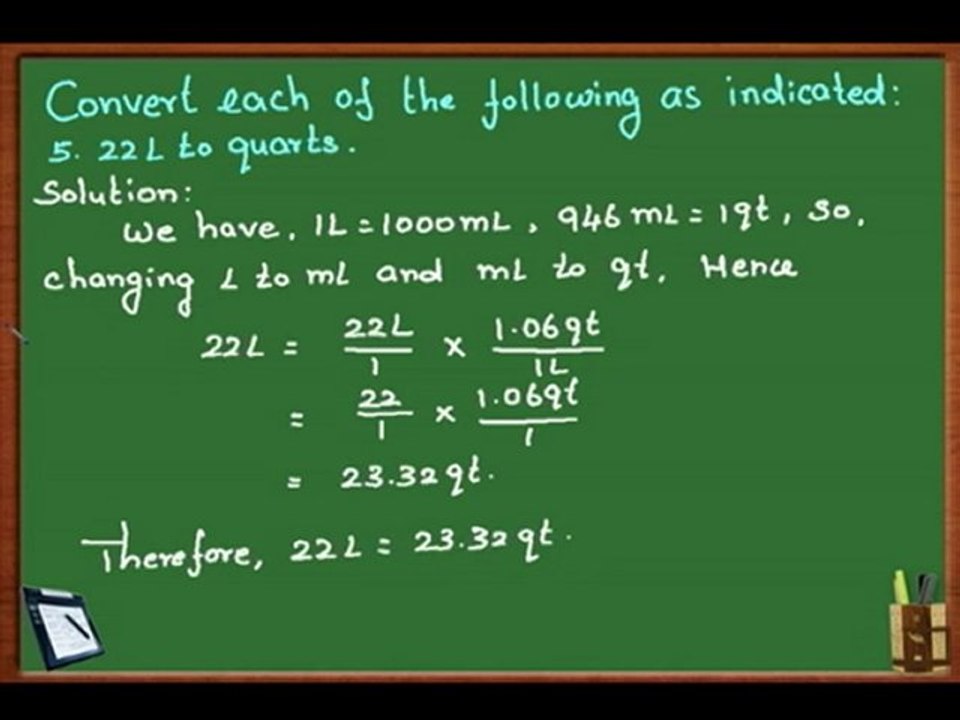 Convert each of the following as indicated:
5. 22L to quarts.
Solution:
We have, 1L = 1000mL, 946 mL = 1qt, So,
changing L to mL and mL to qt. Hence
22L = 22L/1 × 1.06qt/1L
= 22/1 × 1.06qt/1
= 23.32qt.
Therefore, 22L = 23.32qt.